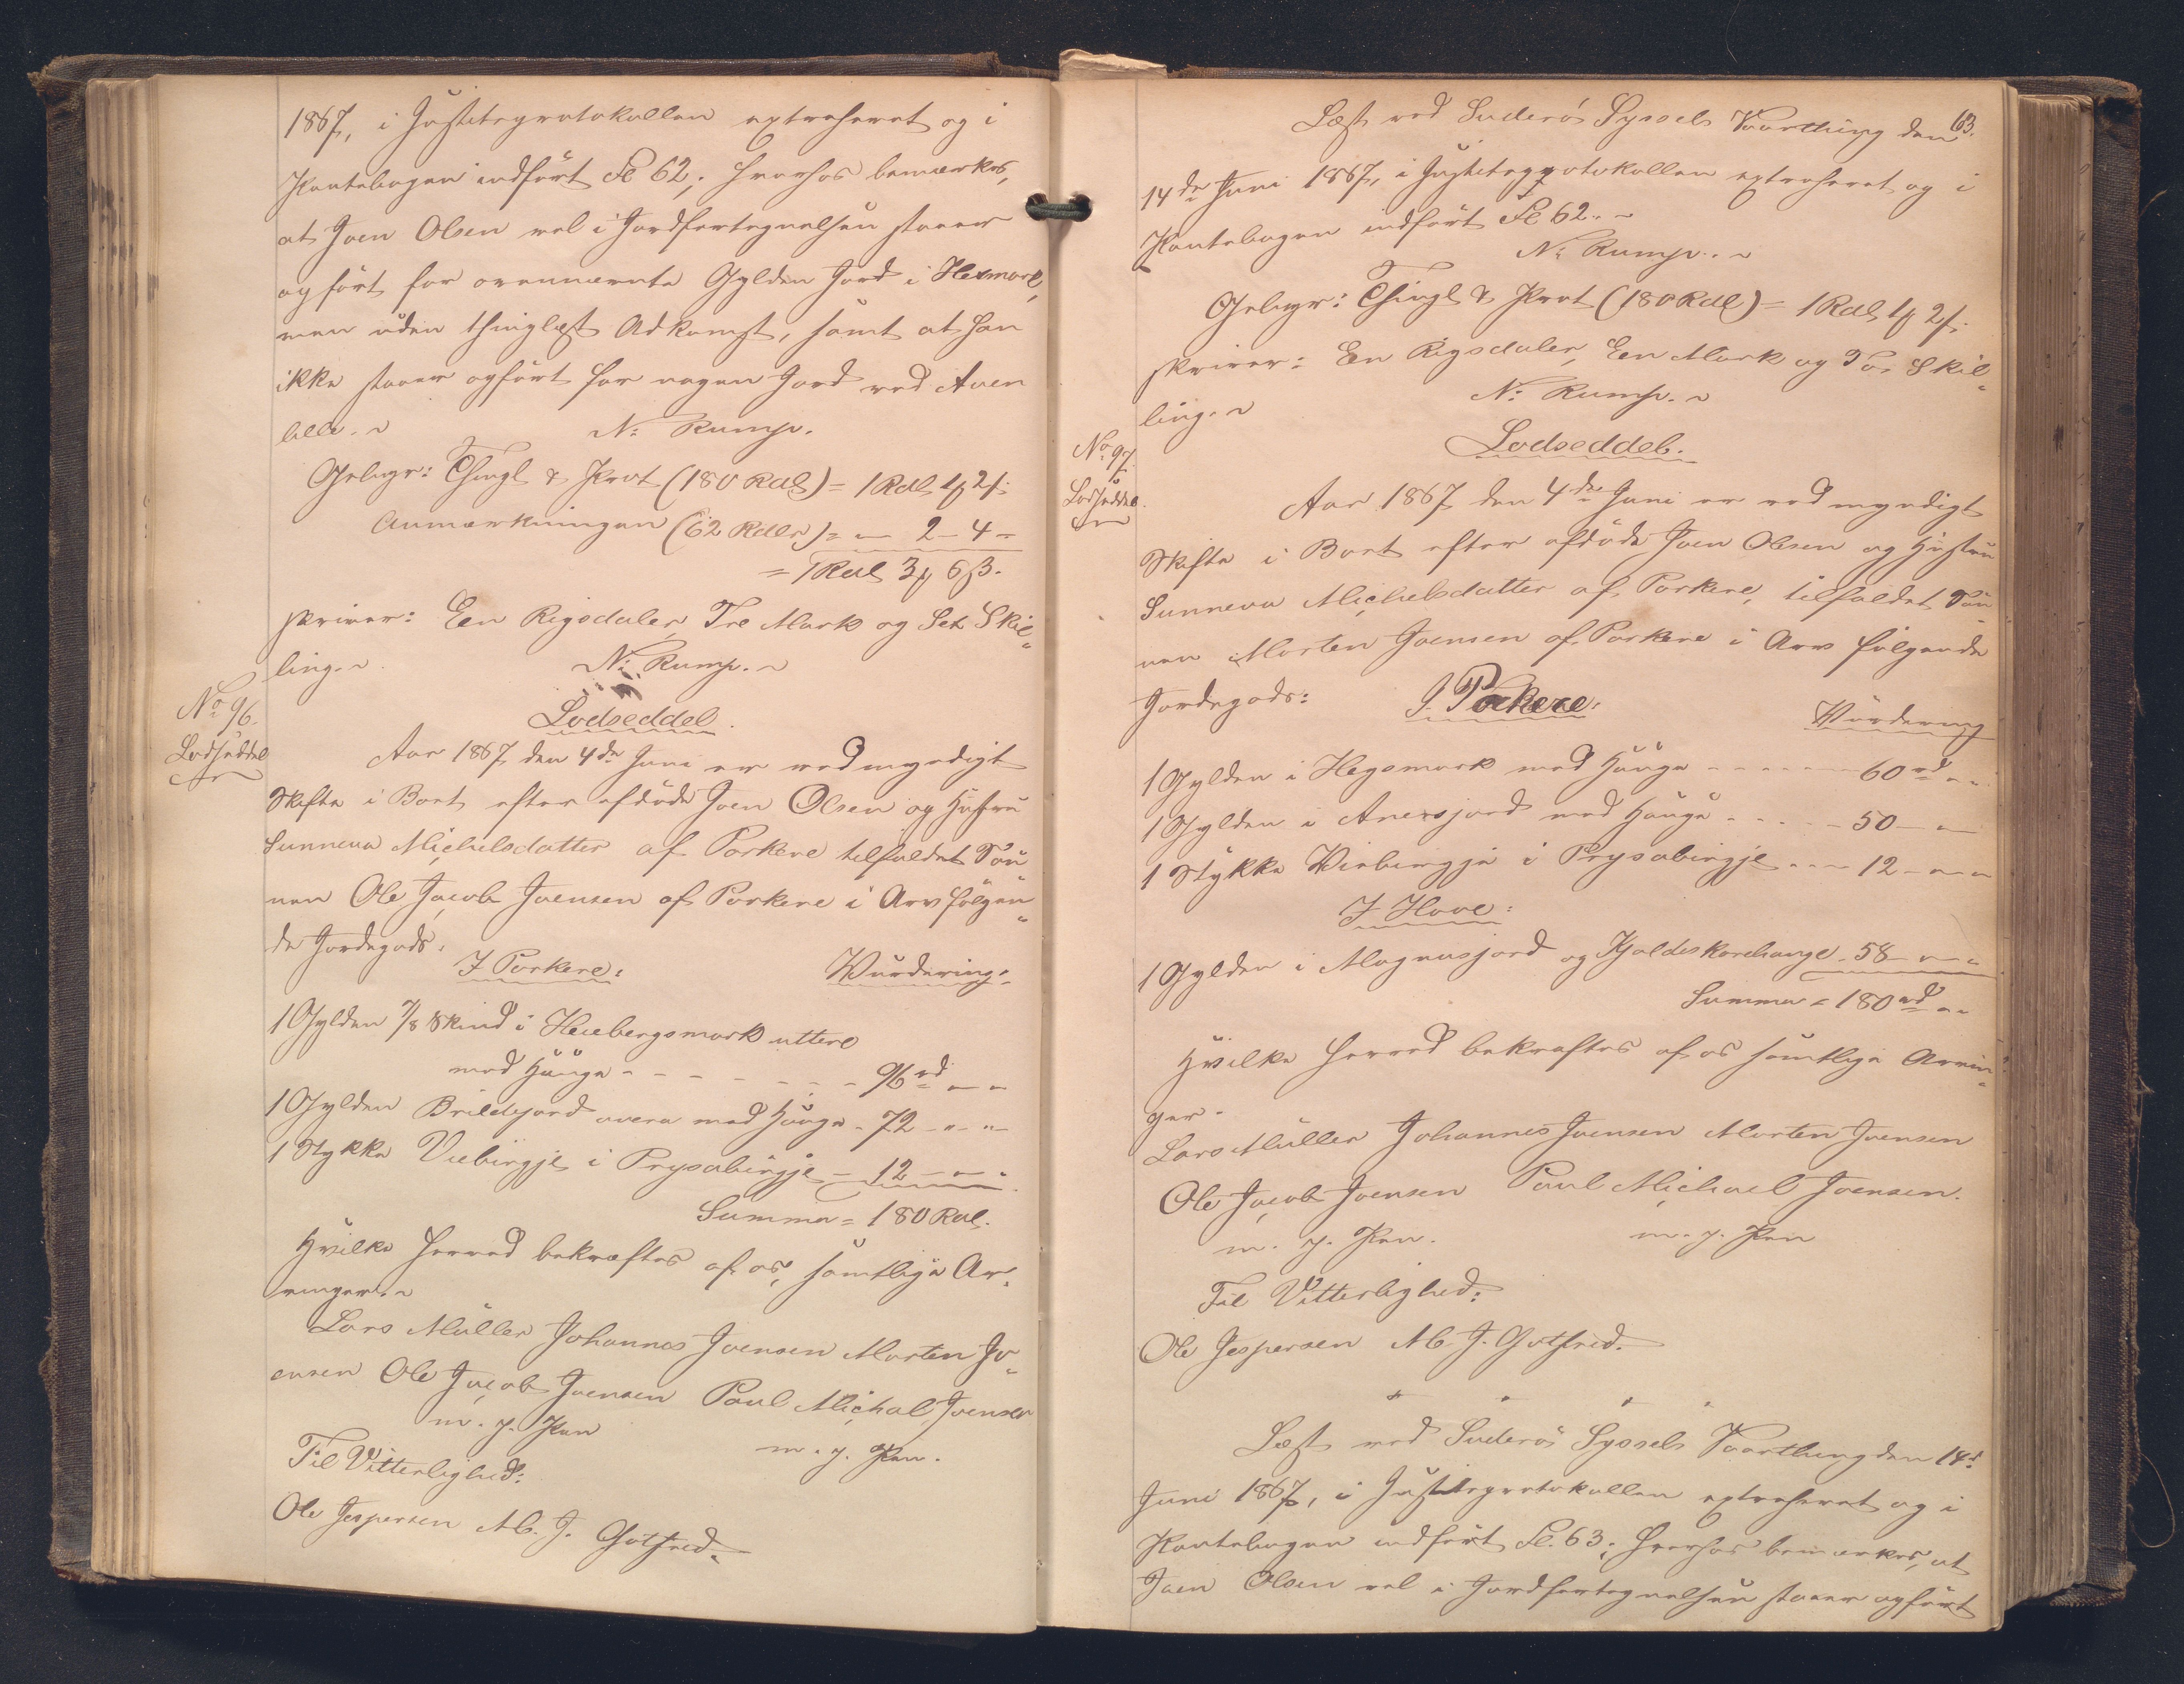 1867, i Justitsprotokollen extraheret og i
Pantebogen indført Fl 62; hvorhos bemærkes,
at Joen Olsen vel i Jordfortegnelsen staaer
opført for ovennævnte Gylden Jord i Hexmark,
men uden thinglæst Adkomst, samt at han
ikke staaer opført for nogen Jord ved Auen
lille.
N: Rump.
Gebyr: Thingl & Prot (180 Rdl) = 1 Rdl 1 ꝟ 2 ß
Anmærkningen (62 Rdlr) = — 2 – 4 –
= 1 Rdl 3 ꝟ 6 ß.
skriver: Een Rigsdaler Tre Mark og Sex Skil-
ling.
N: Rump.
No 96.
Lodseddel
Lodseddel.
Aar 1867 den 4de Juni er ved myndigt
Skifte i Boet efter afdøde Joen Olsen og Hustru
Sunneva Michelsdatter af Porkere tilfaldet Søn
nen Ole Jacob Joensen af Porkere i Arv følgen-
de Jordegods:
I Porkere:
Vurdering:
1 Gylden 7/8 Skind i Heiebergsmark uttere
med Hauge - - - - - - 96 rd - -
1 Gylden Brildejord overa med Hauge - 72 - " - "
1 Stykke Viebirgje i Prysabirgje - 12 - - -
Summa = 180 Rdl.
Hvilke herved bekræftes af os, samtlige Ar-
vinger.
Lars Müller Johannes Joensen Morten Jo-
ensen Ole Jacob Joensen Paul Michal Joensen
m. p. Pen
m. p. Pen.
Til Vitterlighed:
Ole Jespersen M. J. Gutfred.
63.
Læst ved Suderö Syssels Vaarthing den
14de Juni 1867, i Justitsprotokollen extraheret og i
Pantebogen indført Fl 62.
N: Rump.
Gebyr: Thingl & Prot (180 Rdl) = 1 Rdl 1 ꝟ 2 ß
skriver: Een Rigsdaler, Een Mark og To Skil-
ling.
N: Rump.
No 97.
Lodseddel
Lodseddel.
Aar 1867 den 4de Juni er ved myndigt
Skifte i Boet efter afdøde Joen Olsen og Hustru
Sunneva Michelsdatter af Porkere, tilfaldet Søn
nen Morten Joensen af Porkere i Arv følgende
Jordegods:
I Porkere:
Vurdering
1 Gylden i Hegsmark med Hauge - - - - - 60 rd - -
1 Gylden i Anersjord med Hauge - - - - 50 - -
1 Stykke Viebirgje i Prysabirgje - - - 12 - - -
I Hove:
1 Gylden i Magnusjord og Kjaldeskorehauge - 58 - - -
Summa = 180 rd - -
Hvilke herved bekræftes af os samtlige Arvin-
ger.
Lars Müller Johannes Joensen Morten Joensen
Ole Jacob Joensen Paul Michael Joensen.
m. p. Pen.
m. p. Pen
Til Vitterlighed:
Ole Jespersen M. J. Gutfred.
Læst ved Suderö Syssels Vaarthing den 14d
Juni 1867, i Justitsprotokollen extraheret og i
Pantebogen indført Fl. 63; hvorhos bemærkes, at
Joen Olsen vel i Jordfortegnelsen staaer opført